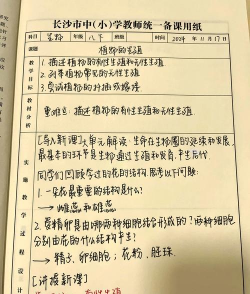 长沙市中(小)学教师统一备课用纸
科目 生物 年级 八下 班级 时间 2024年11月17日
课题 植物的生殖
教学目标
1. 描述植物的有性生殖和无性生殖
2. 列举植物常见的无性生殖
3. 尝试植物的扦插或嫁接
教材分析
重难点: 描述植物的有性生殖和无性生殖
实施教学过程设计
【导入新课】大单元解读: 生命在生物圈的延续和发展,
最基本的环节是生物通过生殖和发育,
同学们回顾学过的花的结构 思考以下问题:
1. 一朵花最重要的结构是什么?
→ 雌蕊和雄蕊
2. 受精卵是由哪两种细胞结合形成的? 两种细胞
分别由花的什么结构产生?
→ 精子、卵细胞; 花粉、胚珠
【讲授新课】